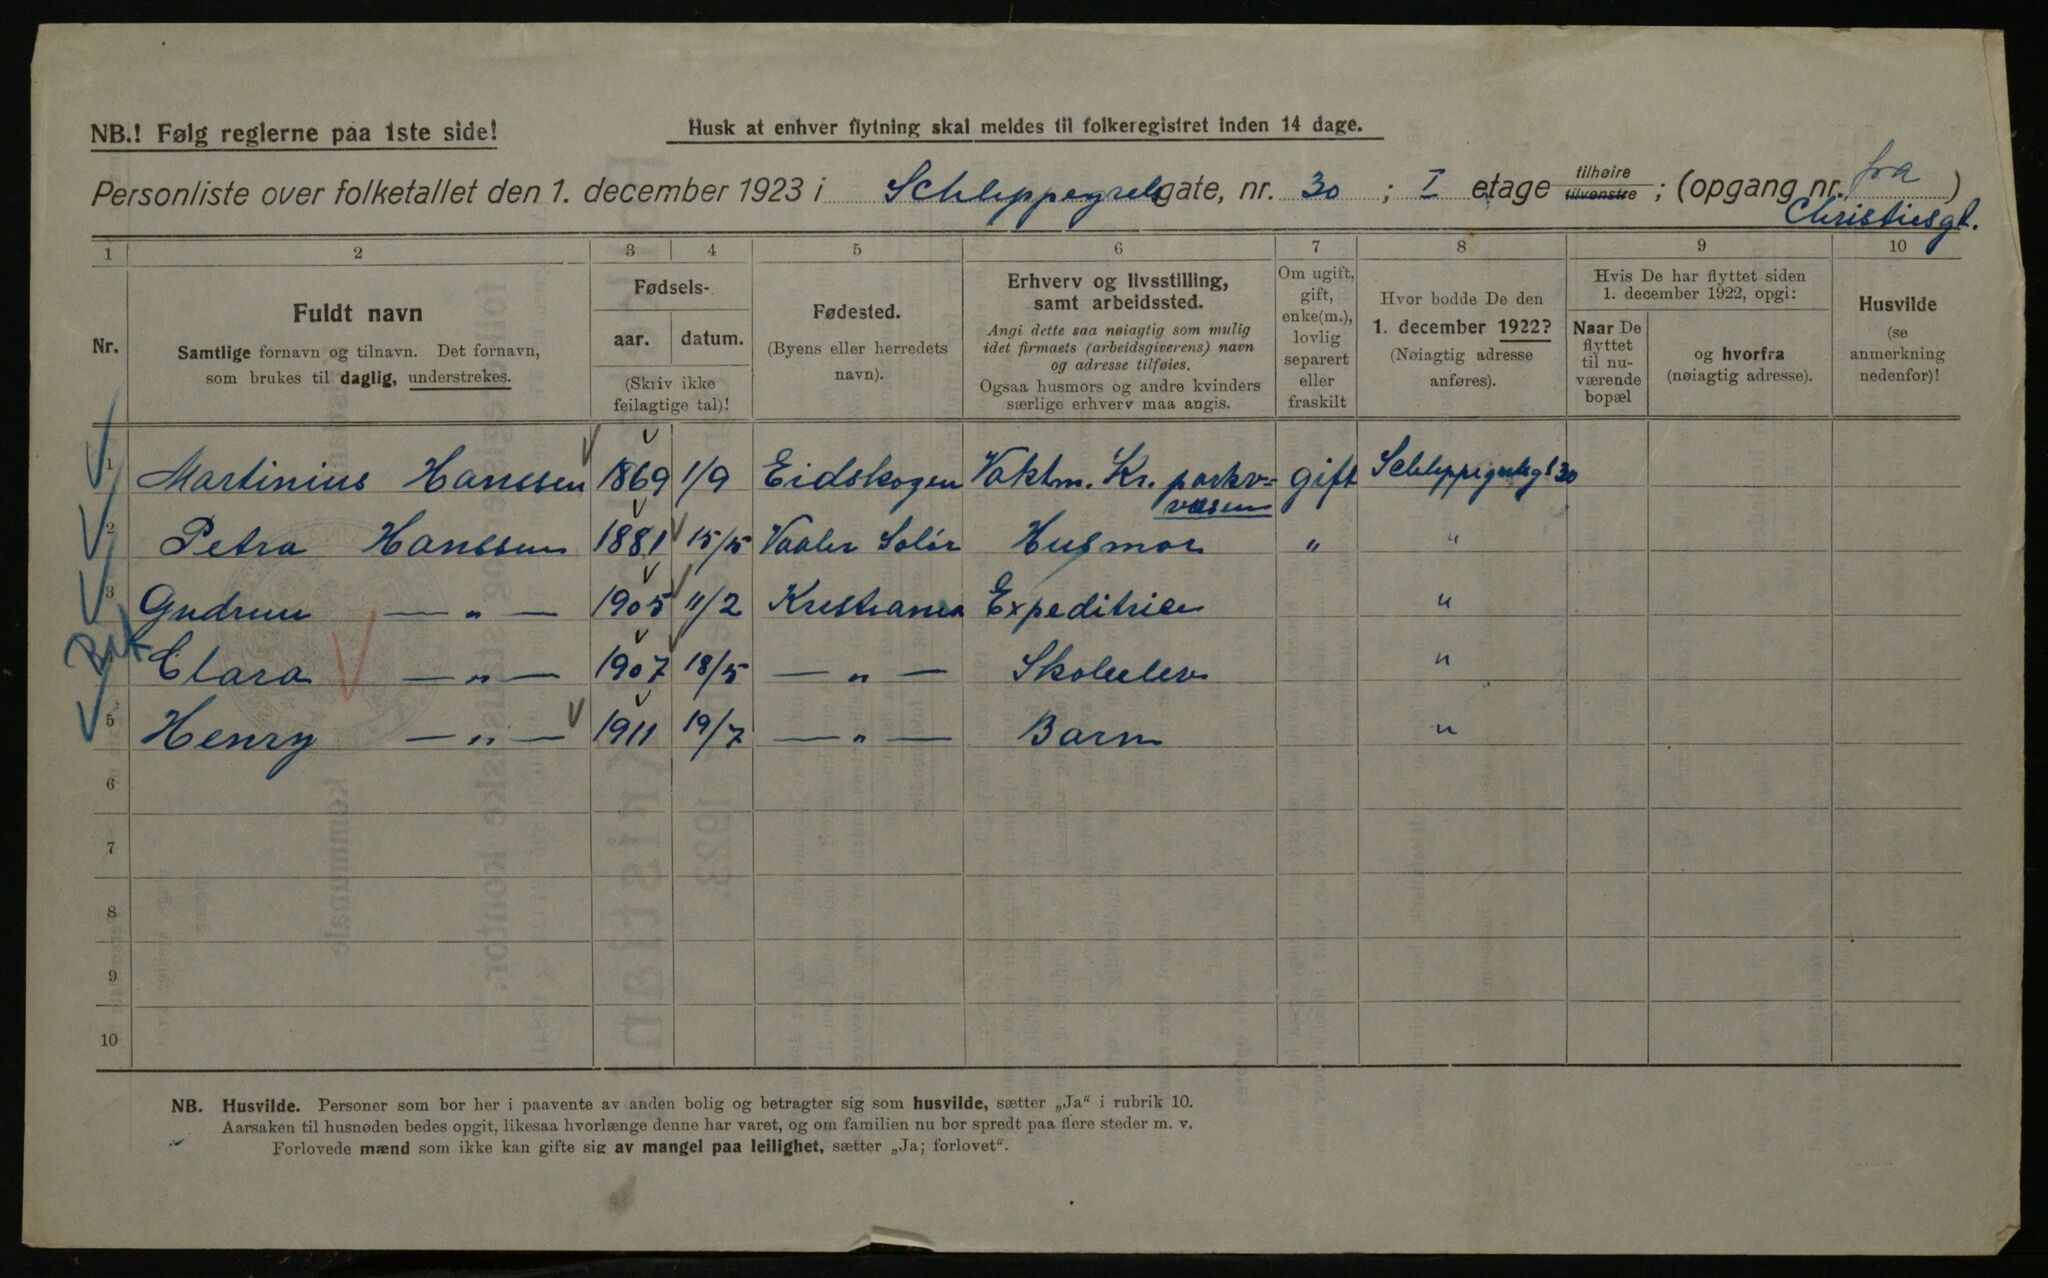 NB.! Følg reglerne paa 1ste side!
Husk at enhver flytning skal meldes til folkeregistret inden 14 dage.
Personliste over folketallet den 1. december 1923 i Schleppegrels gate, nr. 30 ; I etage tilhøire tilvenstre ; (opgang nr. fra )
Christiesgt.
1 2 3 4 5 6 7 8 9 10
Nr.
Fuldt navn
Samtlige fornavn og tilnavn. Det fornavn,
som brukes til daglig, understrekes.
Fødsels-
aar. datum.
(Skriv ikke
feilagtige tal)!
Fødested.
(Byens eller herredets
navn).
Erhverv og livsstilling,
samt arbeidssted.
Angi dette saa nøiagtig som mulig
idet firmaets (arbeidsgiverens) navn
og adresse tilføies.
Ogsaa husmors og andre kvinders
særlige erhverv maa angis.
Om ugift,
gift,
enke(m.),
lovlig
separert
eller
fraskilt
Hvor bodde De den
1. december 1922?
(Nøiagtig adresse
anføres).
Hvis De har flyttet siden
1. december 1922, opgi:
Naar De
flyttet
til nu-
værende
bopæl
og hvorfra
(nøiagtig adresse).
Husvilde
(se
anmerkning
nedenfor)!
1 Martinius Hanssen 1869 1/9 Eidskogen Vaktm. Kr. parkv= gift Schleppegrelsgt 30
væsen
2 Petra Hanssen 1881 15/5 Vaaler Solør Husmor " "
3 Gudrun — " — 1905 11/2 Kristiania Expeditrice "
4 Clara — " — 1907 18/5 — " — Skoleelev "
5 Henry — " — 1911 19/7 — " — Barn "
6
7
8
9
10
NB. Husvilde. Personer som bor her i paavente av anden bolig og betragter sig som husvilde, sætter „Ja“ i rubrik 10.
Aarsaken til husnøden bedes opgit, likesaa hvorlænge denne har varet, og om familien nu bor spredt paa flere steder m. v.
Forlovede mænd som ikke kan gifte sig av mangel paa leilighet, sætter „Ja; forlovet“.